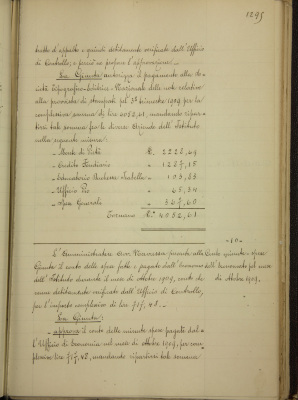 1295
tratto d'appalto e quindi debitamente verificate dall'Ufficio
di Controllo, e perciò ne propone l'approvazione.
La Giunta: autorizza il pagamento alla So-
cietà Tipografico-Editrice Nazionale delle note relative
alla provvista di stampati pel 3° trimestre 1909 per la
complessiva somma di lire 4052,61, mandando ripar-
tirsi tale somma fra le diverse Aziende dell'Istituto
nella seguente misura:
- Monte di Pietà L. 2222,49
- Credito Fondiario " 1227,15
- Educatorio Duchessa Isabella " 105,23
- Ufficio Pio
- Spese Generali
Tornano L. 4052,61
-10-
L'Amministratore Avv. presenta alla Giunta
Giunta il conto delle spese fatte e pagate dall'Economo dell'
dell'Istituto durante il mese di ottobre 1909, conto che
venne debitamente verificato dall'Ufficio di Controllo,
per l'importo complessivo di lire 717,48.
La Giunta:
- approva il conto delle minute spese pagate dal-
l'Ufficio di Economia nel mese di ottobre 1909, per com-
plessive lire 717,48, mandando ripartirsi tale somma